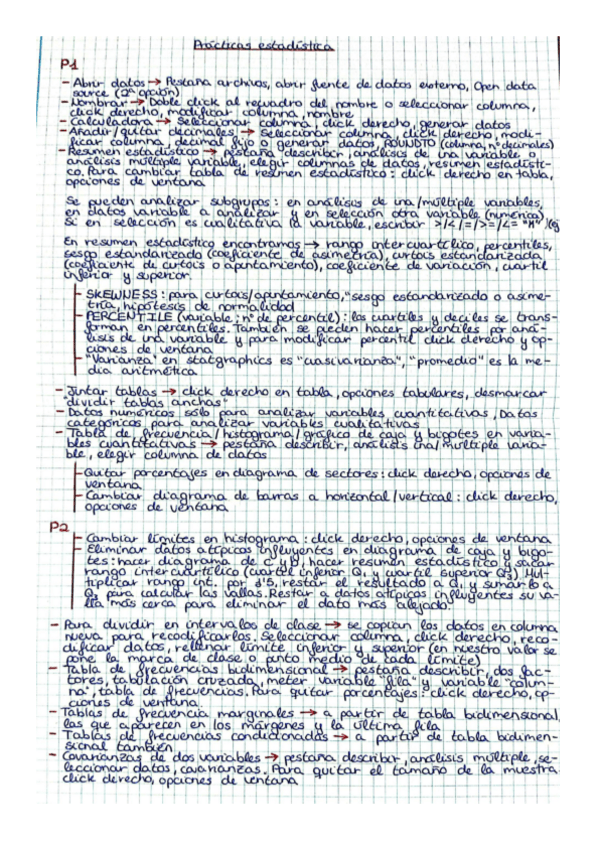 Prácticas estadística
P1
- Abrir datos → Pestaña archivos, abrir fuente de datos externo, Open data
source (2ª opción)
- Nombrar → Doble click al recuadro del nombre o seleccionar columna,
click derecho, modificar columna, nombre
- Calculadora → Seleccionar columna, click derecho, generar datos
- Añadir/quitar decimales → seleccionar columna, click derecho, modi-
ficar columna, decimal fijo o generar datos, ROUNDTO (columna, nº decimales)
- Resumen estadístico → pestaña describir, análisis de una variable o
análisis múltiple variable, elegir columnas de datos, resumen estadísti-
co. Para cambiar tabla de resumen estadístico: click derecho en tabla,
opciones de ventana
Se pueden analizar subgrupos: en análisis de una/múltiple variables,
en datos variable a analizar y en selección otra variable (numérica)
Si en selección es cualitativa la variable, escribir >/</=/>=/<= "M"
En resumen estadístico encontramos → rango intercuartílico, percentiles,
sesgo estandarizado (coeficiente de asimetría), curtosis estandarizada
(coeficiente de curtosis o apuntamiento), coeficiente de variación, cuartil
inferior y superior.
- SKEWNESS: para curtosis/apuntamiento, "sesgo estandarizado o asime-
tría, hipótesis de normalidad
- PERCENTILE (variable; nº de percentil): los cuartiles y deciles se trans-
forman en percentiles. También se pueden hacer percentiles por aná-
lisis de una variable y para modificar percentil click derecho y op-
ciones de ventana
- "Varianza" en statgraphics es "cuasivarianza", "promedio" es la me-
dia aritmética
- Juntar tablas → click derecho en tabla, opciones tabulares, desmarcar
"dividir tablas anchas"
- Datos numéricos sólo para analizar variables cuantitativas, Datos
categóricos para analizar variables cualitativas
- Tabla de frecuencia/histograma/gráfico de caja y bigotes en varia-
bles cuantitativas → pestaña describir, análisis una/múltiple varia-
ble, elegir columna de datos
- Quitar porcentajes en diagrama de sectores: click derecho, opciones de
ventana
- Cambiar diagrama de barras a horizontal/vertical: click derecho,
opciones de ventana
P2
- Cambiar límites en histograma: click derecho, opciones de ventana
- Eliminar datos atípicos influyentes en diagrama de caja y bigo-
tes: hacer diagrama de C y B, hacer resumen estadístico y sacar
rango intercuartílico (cuartil inferior Q₁ y cuartil superior Q₃) Mul-
tiplicar rango int. por 1'5, restar el resultado a Q₁ y sumarlo a
Q₃ para calcular las vallas. Restar a datos atípicos influyentes su va-
lla más cerca para eliminar el dato más alejado.
- Para dividir en intervalos de clase → se copian los datos en columna
nueva para recodificarlos. Seleccionar columna, click derecho, reco-
dificar datos, rellenar límite inferior y superior (en nuestro valor se
pone la marca de clase o punto medio de cada límite)
- Tabla de frecuencias bidimensional → pestaña describir, dos fac-
tores, tabulación cruzada, meter variable "fila" y variable "colum-
na", tabla de frecuencias. Para quitar porcentajes: click derecho, op-
ciones de ventana.
- Tablas de frecuencia marginales → a partir de tabla bidimensional
las que aparecen en los márgenes y la última fila
- Tablas de frecuencias condicionadas → a partir de tabla bidimen-
sional también
- Covarianzas de dos variables → pestaña describir, análisis múltiple, se-
leccionar datos, covarianzas. Para quitar el tamaño de la muestra
click derecho, opciones de ventana